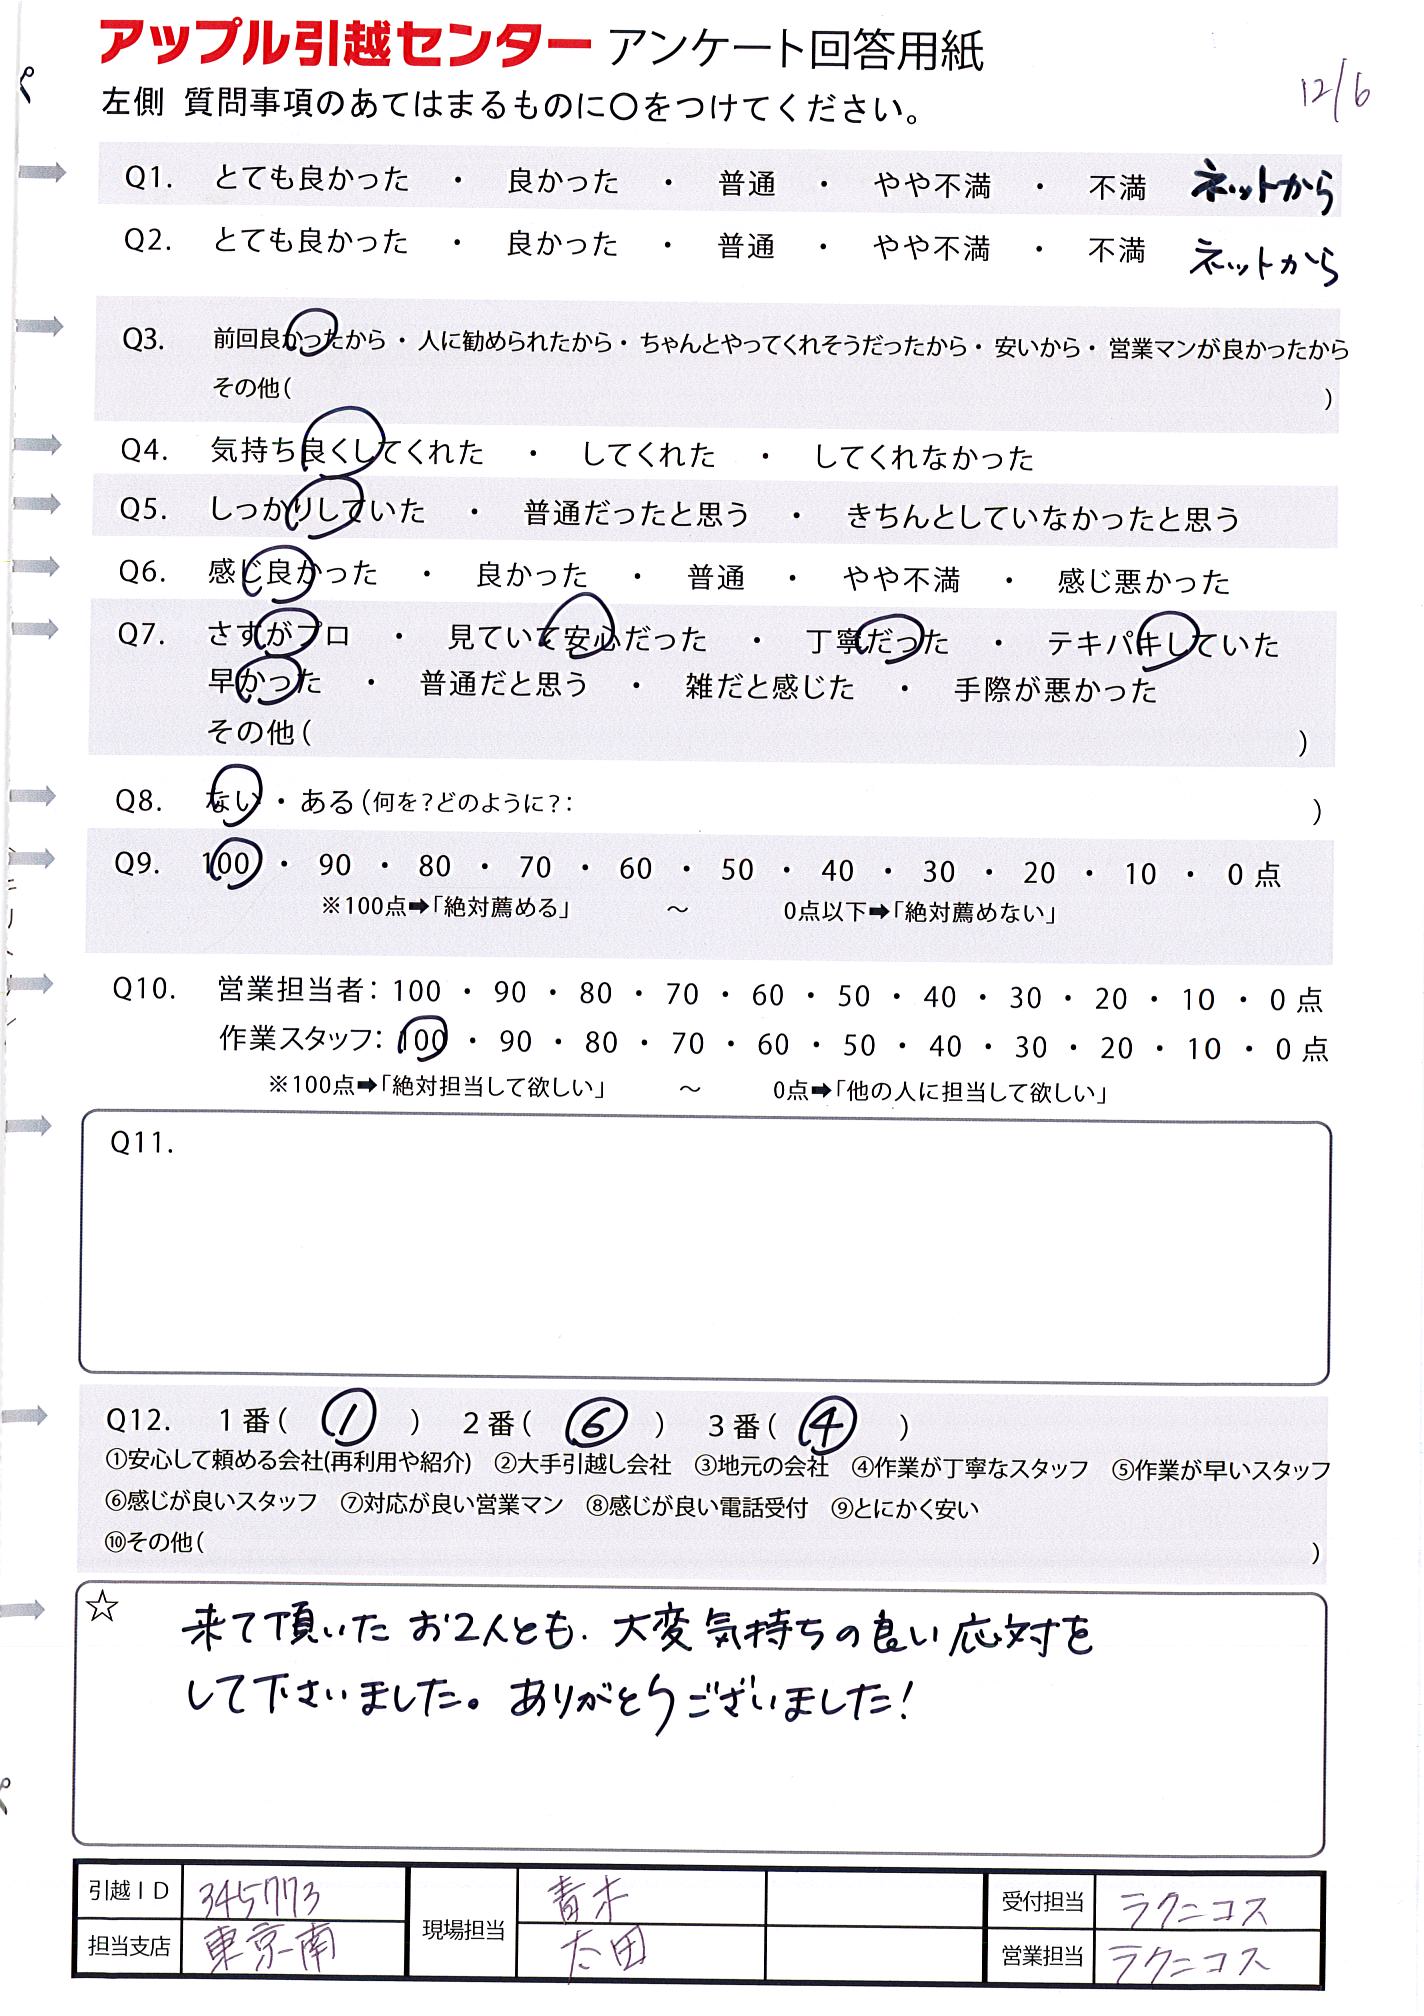 アップル引越センター アンケート回答用紙
12/6
左側 質問事項のあてはまるものに○をつけてください。
Q1. とても良かった ・ 良かった ・ 普通 ・ やや不満 ・ 不満 ネットから
Q2. とても良かった ・ 良かった ・ 普通 ・ やや不満 ・ 不満 ネットから
Q3. 前回良かったから・人に勧められたから・ちゃんとやってくれそうだったから・安いから・営業マンが良かったから
その他( )
Q4. 気持ち良くしてくれた ・ してくれた ・ してくれなかった
Q5. しっかりしていた ・ 普通だったと思う ・ きちんとしていなかったと思う
Q6. 感じ良かった ・ 良かった ・ 普通 ・ やや不満 ・ 感じ悪かった
Q7. さすがプロ ・ 見ていて安心だった ・ 丁寧だった ・ テキパキしていた
早かった ・ 普通だと思う ・ 雑だと感じた ・ 手際が悪かった
その他( )
Q8. ない・ある(何を?どのように?: )
Q9. 100 ・ 90 ・ 80 ・ 70 ・ 60 ・ 50 ・ 40 ・ 30 ・ 20 ・ 10 ・ 0点
※100点➡「絶対薦める」 ～ 0点以下➡「絶対薦めない」
Q10. 営業担当者: 100 ・ 90 ・ 80 ・ 70 ・ 60 ・ 50 ・ 40 ・ 30 ・ 20 ・ 10 ・ 0点
作業スタッフ: 100 ・ 90 ・ 80 ・ 70 ・ 60 ・ 50 ・ 40 ・ 30 ・ 20 ・ 10 ・ 0点
※100点➡「絶対担当して欲しい」 ～ 0点➡「他の人に担当して欲しい」
Q11.
Q12. 1番( ① ) 2番( ⑥ ) 3番( ④ )
①安心して頼める会社(再利用や紹介) ②大手引越し会社 ③地元の会社 ④作業が丁寧なスタッフ ⑤作業が早いスタッフ
⑥感じが良いスタッフ ⑦対応が良い営業マン ⑧感じが良い電話受付 ⑨とにかく安い
⑩その他( )
☆ 来て頂いたお2人とも、大変気持ちの良い応対を
して下さいました。ありがとうございました!
引越ID 345773 現場担当 青木 受付担当 ラクニコス
担当支店 東京南 太田 営業担当 ラクニコス